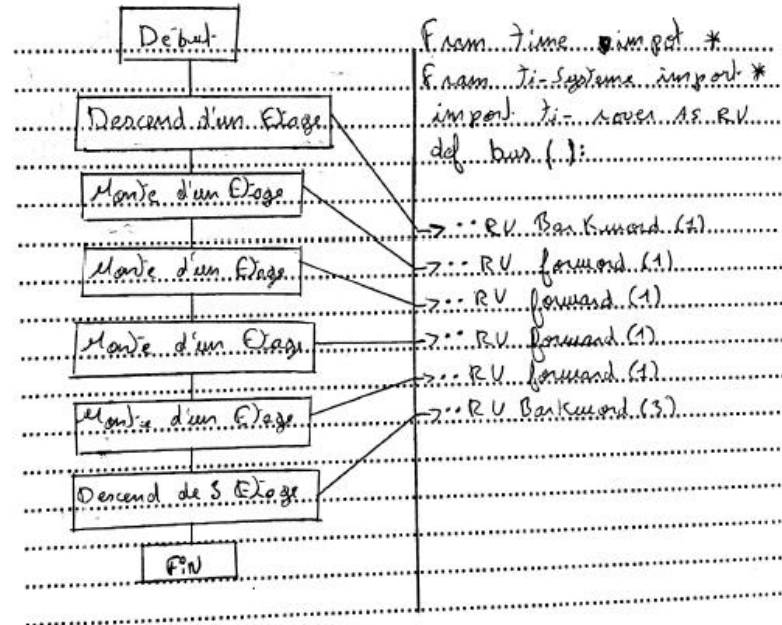 Début
Descend d'un Etage
Monte d'un Etage
Monte d'un Etage
Monte d'un Etage
Monte d'un Etage
Descend de 3 Etage
FiN
From time impot *
From ti-Systeme import *
import ti- rover AS RV
def bus ( ):
→ •• RV Barkword (1)
→ •• RV forword (1)
→ •• RV forward (1)
→ •• RV forward (1)
→ •• RV forward (1)
→ •• RV Barkword (3)